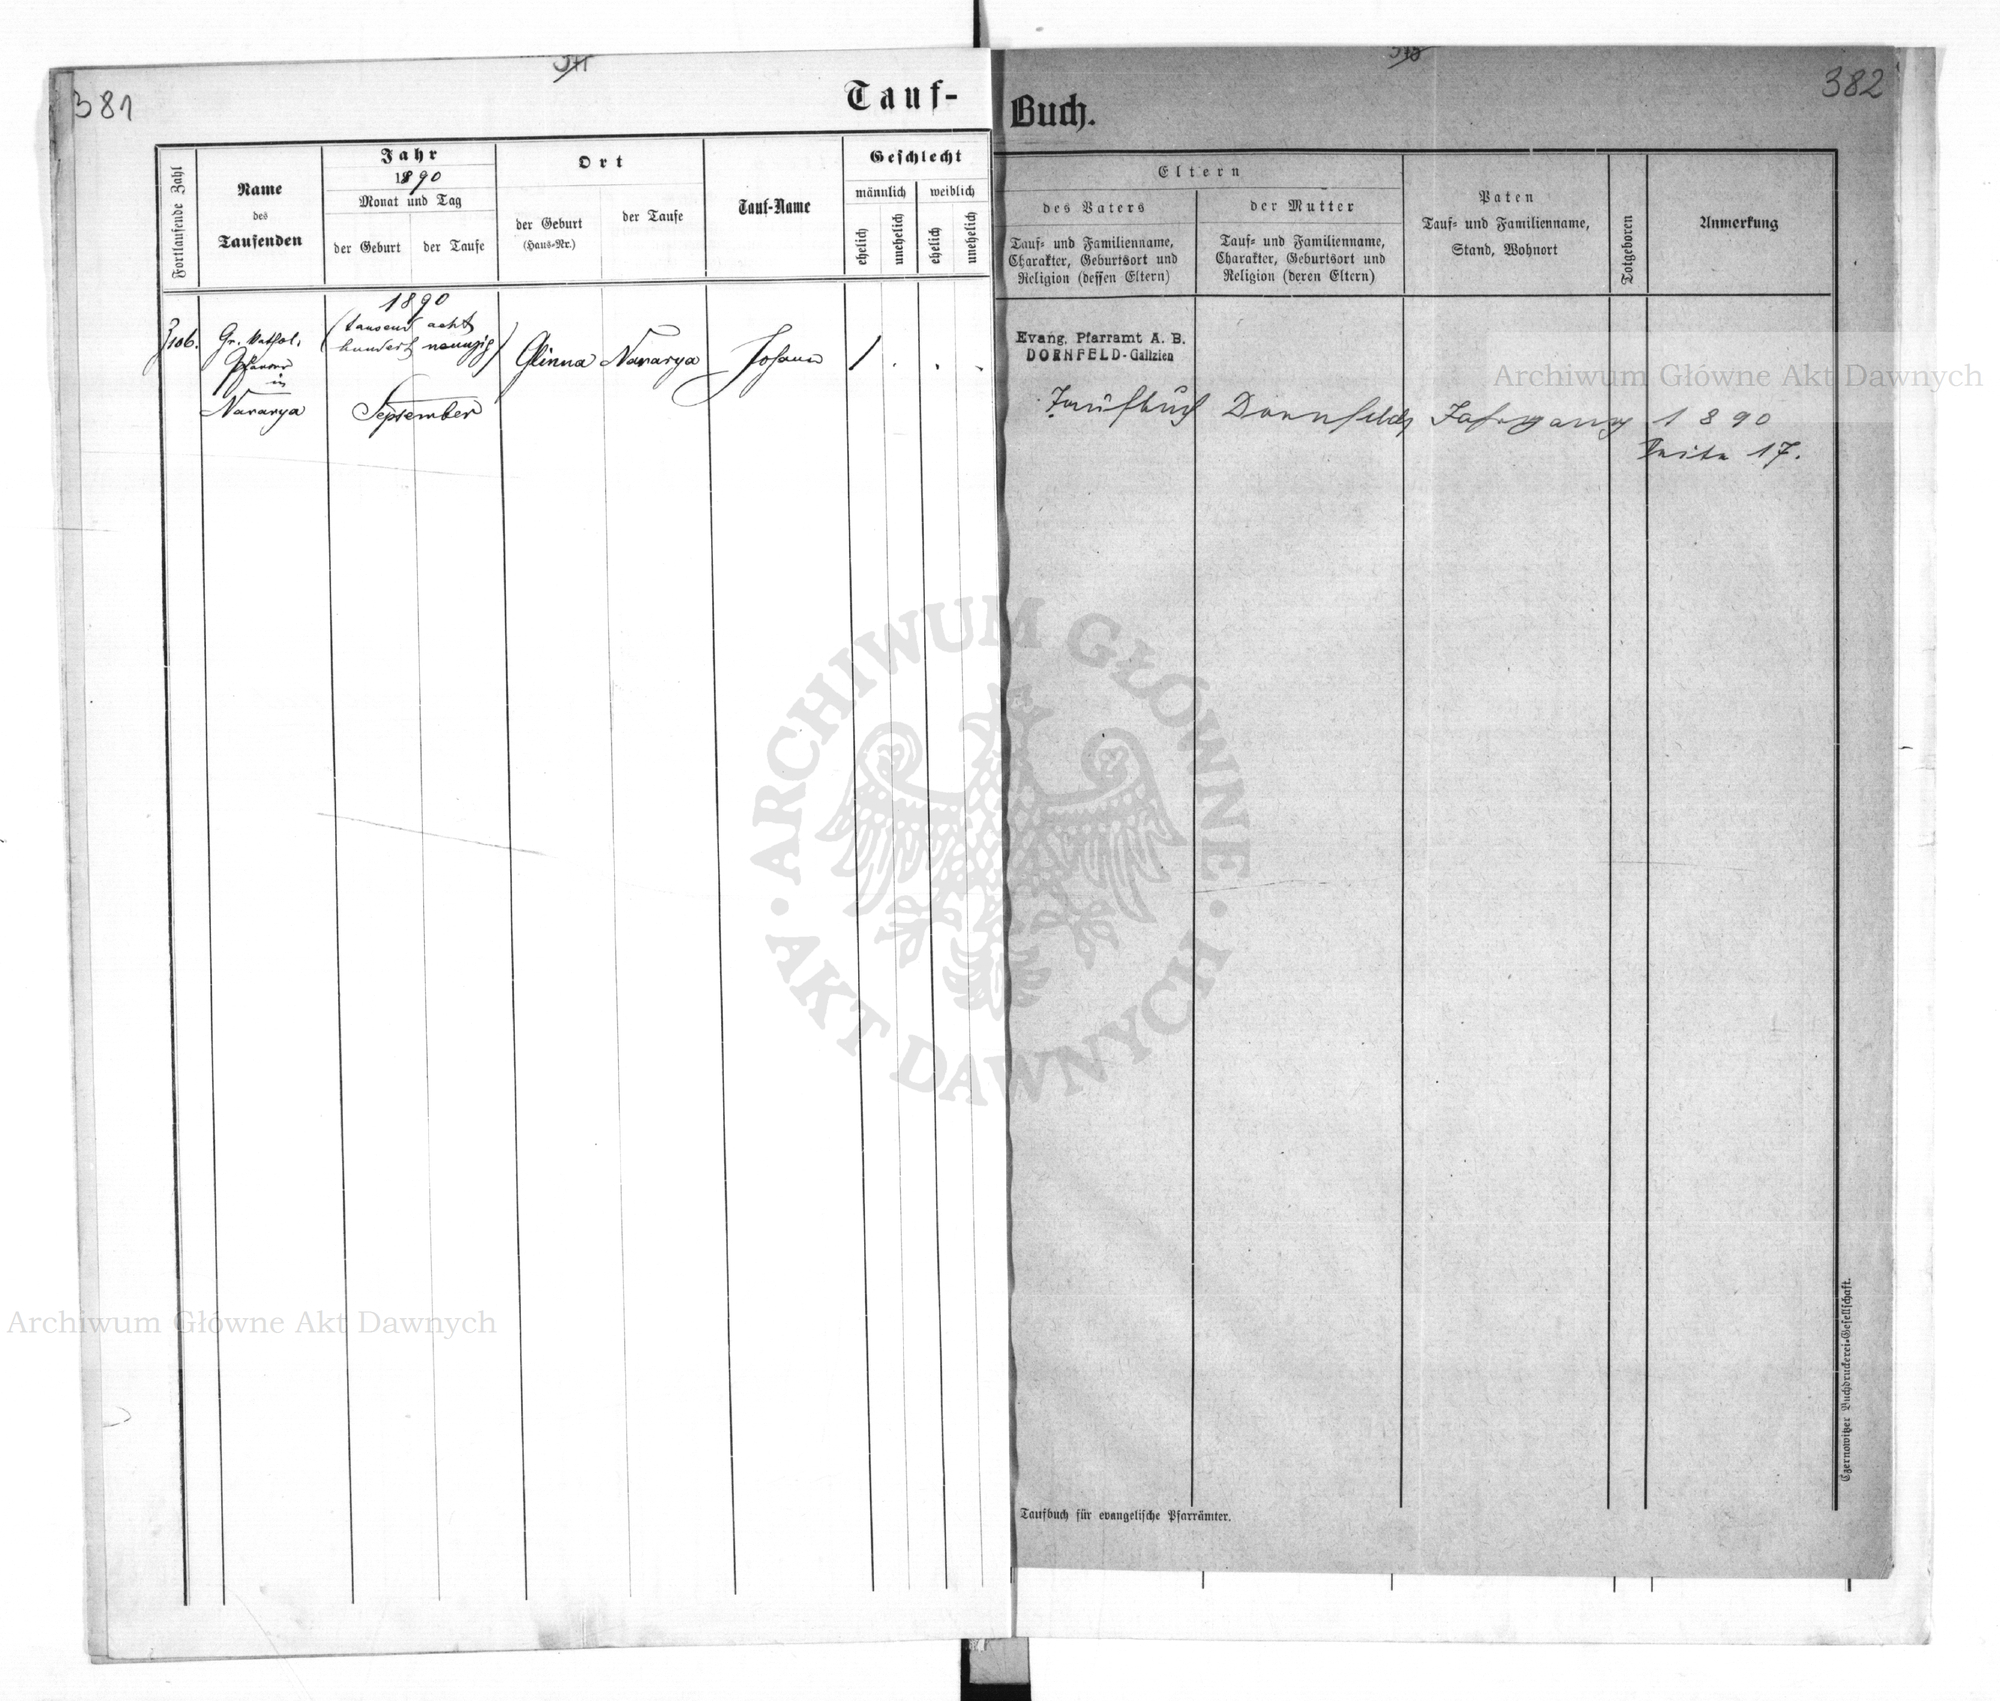 381
382
Tauf-
Buch.
Fortlaufende Zahl
Name
des
Taufenden
Jahr
1890
Monat und Tag
der Geburt
der Taufe
Ort
der Geburt
(Haus-Nr.)
der Taufe
Tauf-Name
Geschlecht
männlich
weiblich
ehelich
unehelich
ehelich
unehelich
Eltern
des Vaters
Tauf- und Familienname,
Charakter, Geburtsort und
Religion (dessen Eltern)
der Mutter
Tauf- und Familienname,
Charakter, Geburtsort und
Religion (deren Eltern)
Paten
Tauf- und Familienname,
Stand, Wohnort
Totgeboren
Anmerkung
106.
Gr. kathol.
Pfarrer
in
Nawarya
1890
(tausend acht
hundert neunzig)
September
Glinna
Nawarya
Johann
1
Evang. Pfarramt A. B.
DORNFELD-Galizien
Taufbuch Dornfeld, Jahrgang 1890
Seite 17.
Archiwum Główne Akt Dawnych
ARCHIWUM GŁÓWNE
AKT DAWNYCH
Archiwum Główne Akt Dawnych
Czernowitzer Buchdruckerei-Gesellschaft.
Taufbuch für evangelische Pfarrämter.